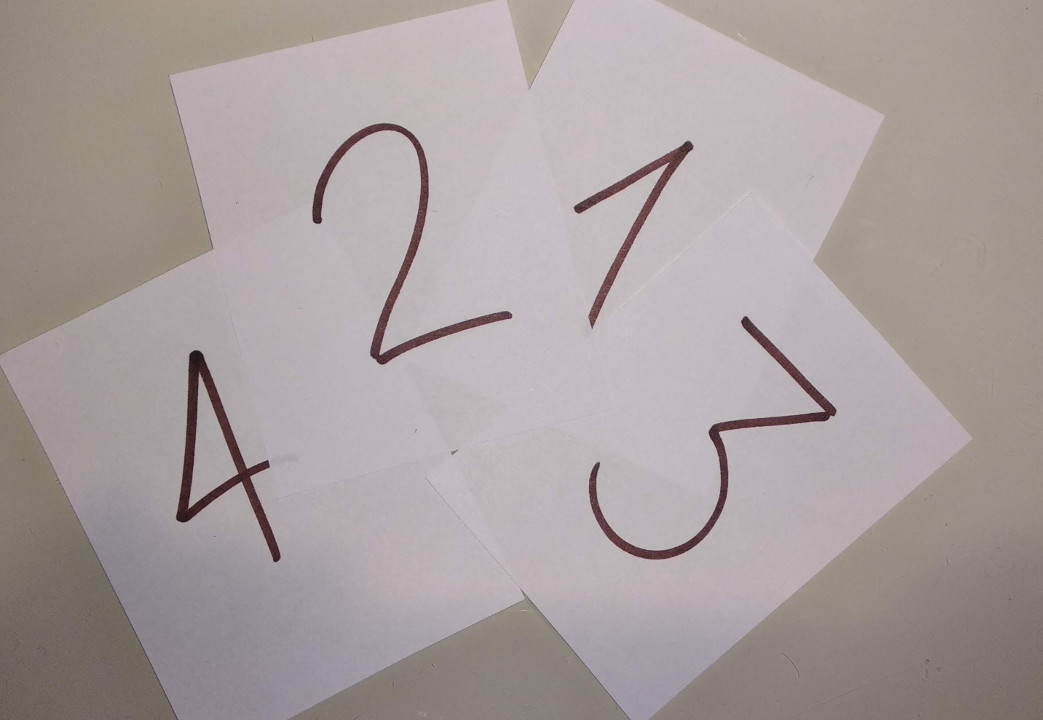 2 1
4 3